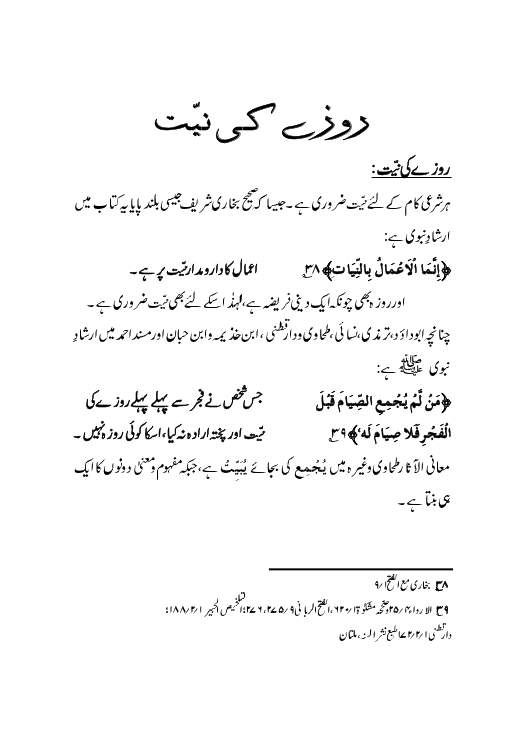 روزے کی نیّت
روزے کی نیّت :
ہر شرعی کام کے لئے نیّت ضروری ہے۔ جیسا کہ صحیح بخاری شریف جیسی بلند پایا یہ کتاب میں
ارشادِ نبوی ہے:
﴿إِنَّمَا الْاَعْمَالُ بِالنِّيَات﴾ ۳۸ اعمال کا دارومدار نیّت پر ہے۔
اور روزہ بھی چونکہ ایک دینی فریضہ ہے، لہٰذا اسکے لئے بھی نیّت ضروری ہے ۔
چنانچہ ابوداؤد، ترمذی، نسائی، طحاوی و دارقطنی ، ابن خذیمہ و ابن حبان اور مسند احمد میں ارشادِ
نبوی ﷺ ہے:
﴿مَنْ لَّمْ يُجْمِعِ الصِّيَامَ قَبْلَ جس شخص نے فجر سے پہلے پہلے روزے کی
الْفَجْرِ فَلا صِيَامَ لَه‘﴾ ۳۹ نیّت اور پختہ ارادہ نہ کیا، اسکا کوئی روزہ نہیں ۔
معانی الآثار طحاوی وغیرہ میں يُجْمِع کی بجائے يُبَيِّتُ ہے، جبکہ مفہوم و معنیٰ دونوں کا ایک
ہی بنتا ہے ۔
۳۸ بخاری مع الفتح ۹/۱
۳۹ الارواء ۲۵/۴ و صححہ مشکوٰۃ ۶۲۰/۱، الفتح الربانی ۲۷۵/۹، ۲۷۶؛ التلخیص الحبیر ۱۸۸/۲/۱؛
دارقطنی ۱۷۲/۲/۱ طبع نشر السنہ، ملتان